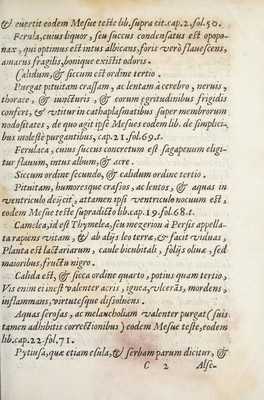 & euertit eodem Mesue teste lib. supra cit. cap. 2. fol. 50.
Ferula, cuius liquor, seu succus condensatus est opopo-
nax, qui optimus est intus albicans, foris verò flauescens,
amarus fragilis, bonique existit odoris.
Calidum, & siccum est ordine tertio.
Purgat pituitam crassam, ac lentam à cerebro, neruis,
thorace, & iuncturis, & eorum egritudinibus frigidis
confert, & vtitur in cathaplasmatibus super membrorum
nodositates, de quo agit ipse Mesues eodem lib. de simplici-
bus molestè purgantibus, cap. 21. fol. 69. t.
Ferulaca, cuius succus concretum est sagapenum eligi-
tur flauum, intus album, & acre.
Siccum ordine secundo, & calidum ordine tertio.
Pituitam, humoresque crasos, ac lentos, & aquas in
ventriculo deijcit, attamen ipsi ventriculo nocuum est,
eodem Mesue teste supradicto lib. cap. 19. fol. 68. t.
Camelea, id est Thymelea, seu mezerion à Persis appella-
ta rapiens vitam, & ab alijs leo terræ, & facit viduas,
Planta est lactariarum, caule bicubitali, folijs oliuæ, sed
maioribus, fructu nigro.
Calida est, & sicca ordine quarto, potius quam tertio,
Vis enim ei inest valenter acris, ignea, vlcerās, mordens,
inflammans, virtutesque dissoluens.
Aquas serosas, ac melancholiam valenter purgat (suis
tamen adhibitis correctionibus) eodem Mesue teste, eodem
lib. cap. 22. fol. 71.
Pytiusa, quæ etiam esula, & serbam parum dicitur, &
C 2 Alse-